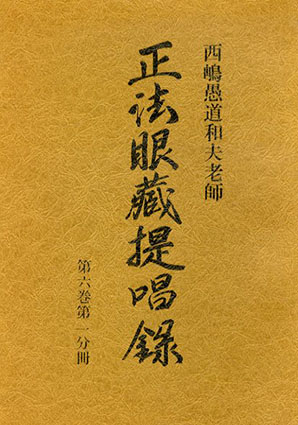 西嶋愚道和夫老師
正法眼藏提唱錄
第六巻第一分冊